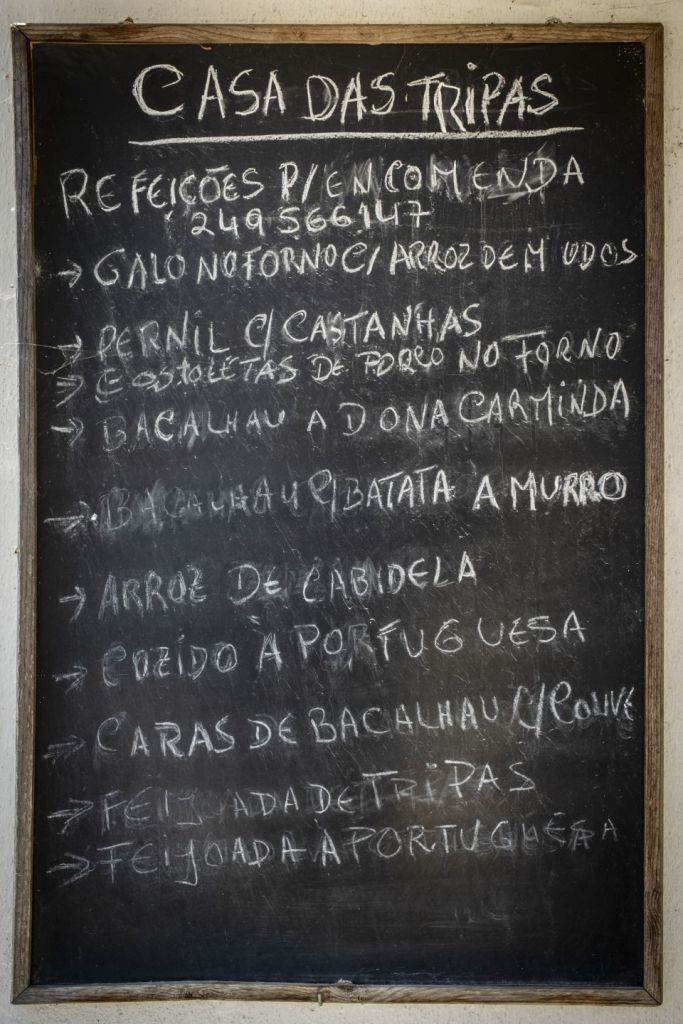 CASA DAS TRIPAS
REFEIÇÕES P/ENCOMENDA
249566147
→ GALO NO FORNO C/ ARROZ DE MIUDOS
→ PERNIL C/ CASTANHAS
→ COSTOLETAS DE PORCO NO FORNO
→ BACALHAU A DONA CARMINDA
→ BACALHAU C/BATATA A MURRO
→ ARROZ DE CABIDELA
→ COZÍDO À PORTUGUESA
→ CARAS DE BACALHAU C/COUVE
→ FEIJOADA DE TRIPAS
→ FEIJOADA À PORTUGUESA